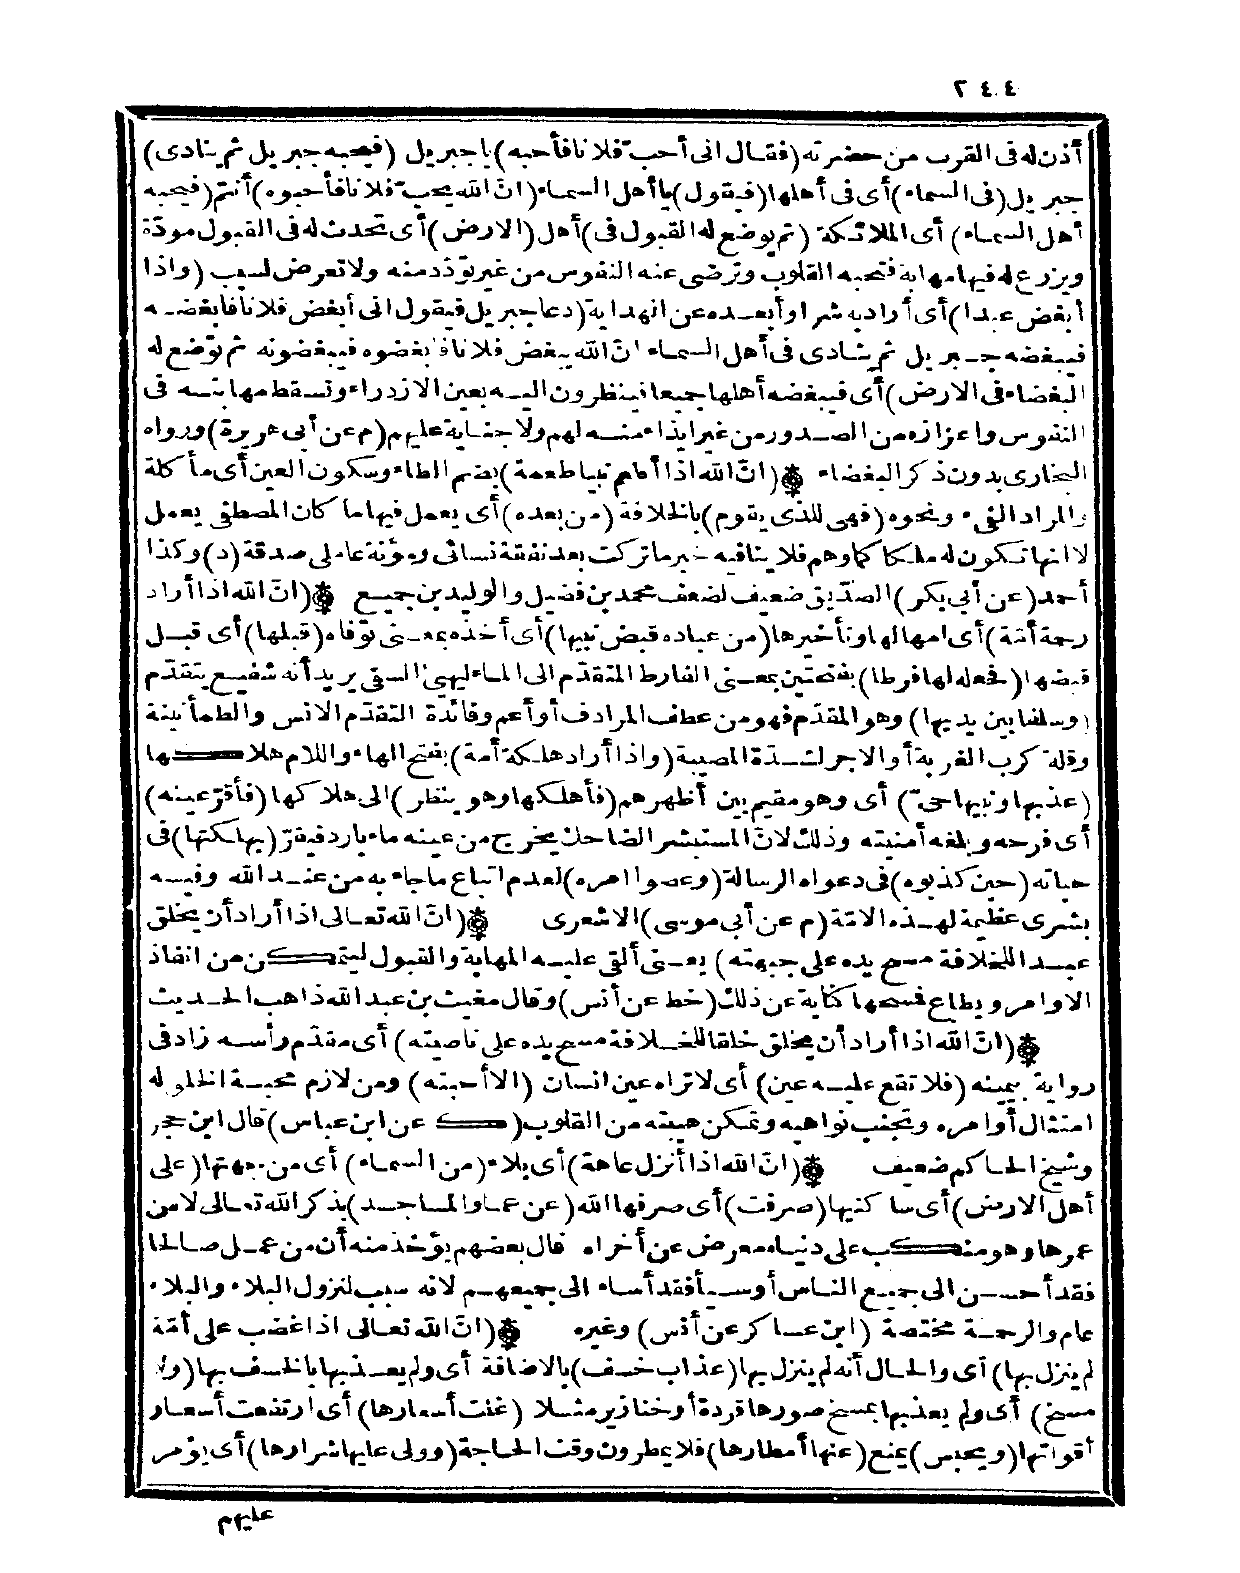 ٢٤٤
أذن له فى القرب من حضرته (فقال انى أحب فلانا فأحبه) ياجبريل (فيحبه جبريل ثم ينادى)
جبريل (فى السماء) أى فى أهلها (فيقول) ياأهل السماء (انّ الله يحب فلانا فأحبوه) أنتم (فيحبه
أهل السماء) أى الملائكة (ثم يوضع له القبول فى) أهل (الارض) أى تحدث له فى القبول مودّة
ويزرع له فيها مهابة فتحبه القلوب وترضى عنه النفوس من غير تودّد منه ولا تعرض لسبب (واذا
أبغض عبدا) أى أراد به شرا وأبعده عن الهداية (دعا جبريل فيقول انى أبغض فلانا فابغضه
فيبغضه جبريل ثم ينادى فى أهل السماء انّ الله يبغض فلانا فابغضوه فيبغضونه ثم توضع له
البغضاء فى الارض) أى فيبغضه أهلها جميعا فينظرون اليه بعين الازدراء وتسقط مهابته فى
النفوس واعزازه من الصدور من غير ايذاء منه لهم ولا جناية عليهم (م عن أبى هريرة) ورواه
البخارى بدون ذكر البغضاء ۞ (انّ الله اذا أطعم نبيا طعمة) بضم الطاء وسكون العين أى مأكلة
والمراد الفىء ونحوه (فهى للذى يقوم) بالخلافة (من بعده) أى يعمل فيها ما كان المصطفى يعمل
لا انها تكون له ملكا كما وهم فلا ينافيه خبر ما تركت بعد نفقة نسائى ومؤنة عاملى صدقة (د) وكذا
أحمد (عن أبى بكر) الصدّيق ضعيف لضعف محمد بن فضيل والوليد بن جميع ۞ (انّ الله اذا أراد
رحمة أمّة) أى امهالها وتأخيرها (من عباده قبض نبيها) أى أخذه بمعنى توّفاه (قبلها) أى قبل
قبضها (فجعله لها فرطا) بفتحتين بمعنى الفارط المتقدّم الى الماء ليهئ السقى يريد أنه شفيع يتقدّم
(وسلفا بين يديها) وهو المقدّم فهو من عطف المرادف أو أعم وفائدة التقدّم الانس والطمأنينة
وقلة كرب الغربة أو الاجر لشدّة المصيبة (واذا أراد هلكة أمة) بفتح الهاء واللام هلاكها
(عذبها ونبيها حىّ) أى وهو مقيم بين أظهرهم (فأهلكها وهو ينظر) الى هلاكها (فأقرّ عينه)
أى فرحه وبلغه أمنيته وذلك لانّ المستبشر الضاحك يخرج من عينه ماء بارد فيقرّ (بهلكتها) فى
حياته (حين كذبوه) فى دعواه الرسالة (وعصوا امره) لعدم اتباع ما جاء به من عند الله وفيه
بشرى عظيمة لهذه الامّة (م عن أبى موسى) الاشعرى ۞ (انّ الله تعالى اذا أراد أن يخلق
عبدا للخلافة مسح يده على جبهته) يعنى ألقى عليه المهابة والقبول ليتمكن من انفاذ
الاوامر ويطاع فمسحها كناية عن ذلك (خط عن أنس) وقال مغيث بن عبد الله ذاهب الحديث
۞ (انّ الله اذا أراد أن يخلق خلقا للخلافة مسح يده على ناصيته) أى مقدّم رأسه زاد فى
رواية بيمينه (فلا تقع عليه عين) أى لا تراه عين انسان (الا أحبته) ومن لازم محبة الخلق له
امتثال أوامره وتجنب نواهيه وتمكن هيبته من القلوب (ك عن ابن عباس) قال ابن حجر
وشيخ الحاكم ضعيف ۞ (انّ الله اذا أنزل عاهة) أى بلاء (من السماء) أى من جهتها (على
أهل الارض) أى ساكنيها (صرفت) أى صرفها الله (عن عمار المساجد) بذكر الله تعالى لا من
عمرها وهو منكب على دنياه معرض عن أخراه قال بعضهم يؤخذ منه أن من عمل صالحا
فقد أحسن الى جميع الناس أو سيأ فقد أساء الى جميعهم لانه سبب لنزول البلاء والبلاء
عام والرحمة مختصة (ابن عساكر عن أنس) وغيره ۞ (انّ الله تعالى اذا غضب على أمّة
لم ينزل بها) أى والحال أنه لم ينزل بها (عذاب خسف) بالاضافة أى ولم يعذبها بالخسف بها (ولا
مسخ) أى ولم يعذبها بمسخ صورها قردة أو خنازير مثلا (غلت أسعارها) أى ارتفعت أسعار
أقواتها (ويحبس) يمنع (عنها أمطارها) فلا يمطرون وقت الحاجة (وولى عليها شرارها) أى يؤمر
عليهم